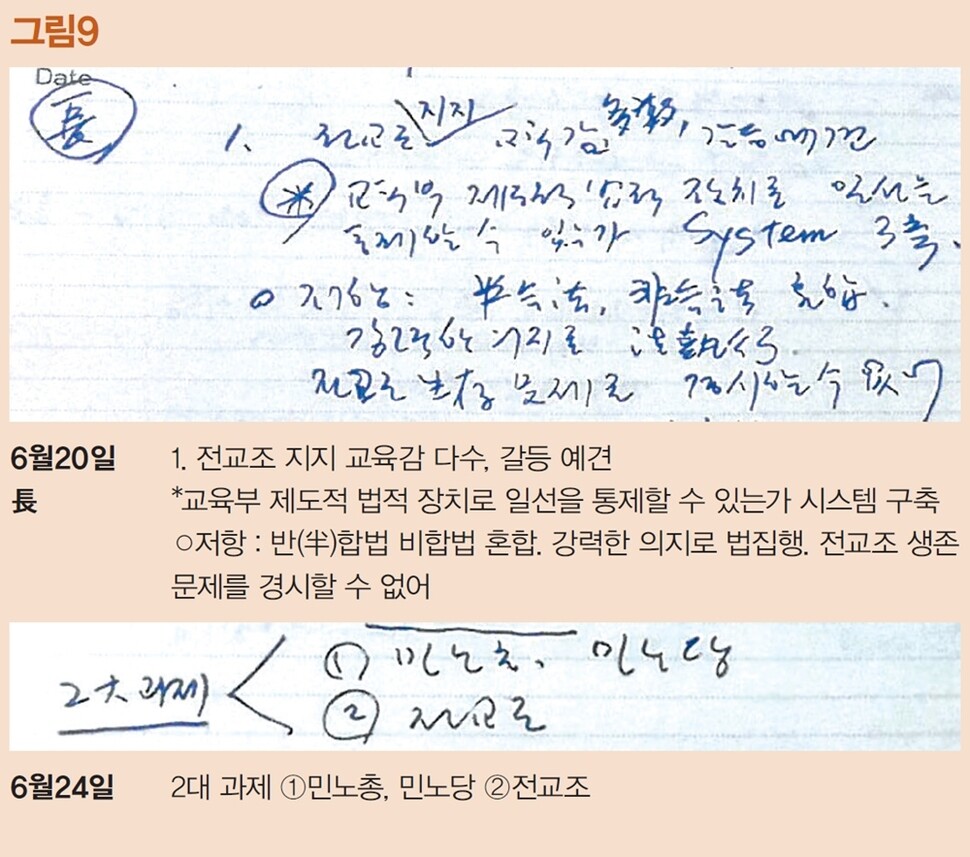 그림9
Date
長
1. 전교조 지지 교육감 多數, 갈등 예견
* 교육부 제도적 법적 장치로 일선을
통제할 수 있는가 System 구축.
○ 저항 : 半合法, 非合法 혼합.
강력한 의지로 法執行.
전교조 生存 문제를 경시할 수 없어
6월20일 1. 전교조 지지 교육감 다수, 갈등 예견
長 *교육부 제도적 법적 장치로 일선을 통제할 수 있는가 시스템 구축
○저항 : 반(半)합법 비합법 혼합. 강력한 의지로 법집행. 전교조 생존
문제를 경시할 수 없어
2大 과제 ① 민노총, 민노당
② 전교조
6월24일 2대 과제 ①민노총, 민노당 ②전교조